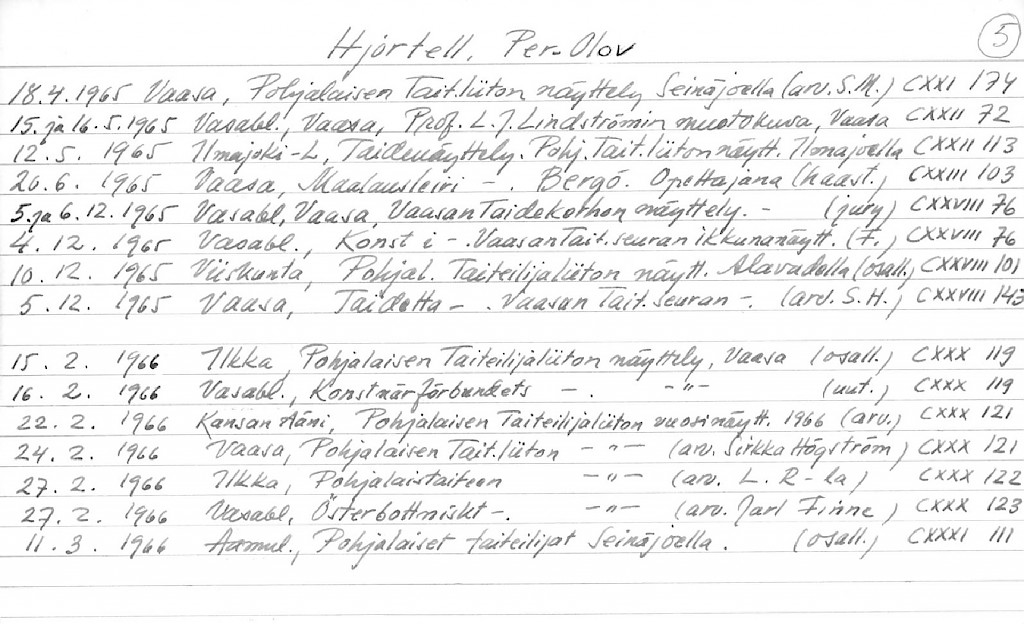 Hjortell, Per-Olov
5
18.4.1965 Vaasa, Pohjalaisen Tait.liiton näyttely Seinäjoella (arv. S.M.) CXXI 174
15. ja 16.5.1965 Vasabl., Vaasa, Prof. L.J. Lindströmin muotokuva, Vaasa CXXII 72
12.5. 1965 Ilmajoki-L, Taidenäyttely. Pohj. Tait.liiton näytt. Ilmajoella CXXII 113
20.6. 1965 Vaasa, Maalausleiri - . Bergö. Opettajana (haast.) CXXIII 103
5. ja 6.12.1965 Vasabl, Vaasa, Vaasan Taidekothon näyttely. - (jury) CXXVIII 76
4.12. 1965 Vasabl., Konst i - . Vaasan Tait.seuran ikkunanäytt. (F.) CXXVIII 76
10.12. 1965 Viiskunta, Pohjal. Taiteilijaliiton näytt. Alavudella (osall.) CXXVIII 101
5.12. 1965 Vaasa, Taidetta - . Vaasan Tait.seuran -. (arv. S.H.) CXXVIII 143
15.2. 1966 Ilkka, Pohjalaisen Taiteilijaliiton näyttely, Vaasa (osall.) CXXX 119
16.2. 1966 Vasabl., Konstnärförbundets - . -"- (uut.) CXXX 119
22.2. 1966 Kansan Ääni, Pohjalaisen Taiteilijaliiton vuosinäytt. 1966 (arv.) CXXX 121
24.2. 1966 Vaasa, Pohjalaisen Tait.liiton -"- (arv. Sirkka Högström) CXXX 121
27.2. 1966 Ilkka, Pohjalaistaiteen -"- (arv. L. R-la) CXXX 122
27.2. 1966 Vasabl, Österbottniskt -. -"- (arv. Jarl Finne) CXXX 123
11.3. 1966 Aamul., Pohjalaiset taiteilijat Seinäjoella. (osall.) CXXXI 111